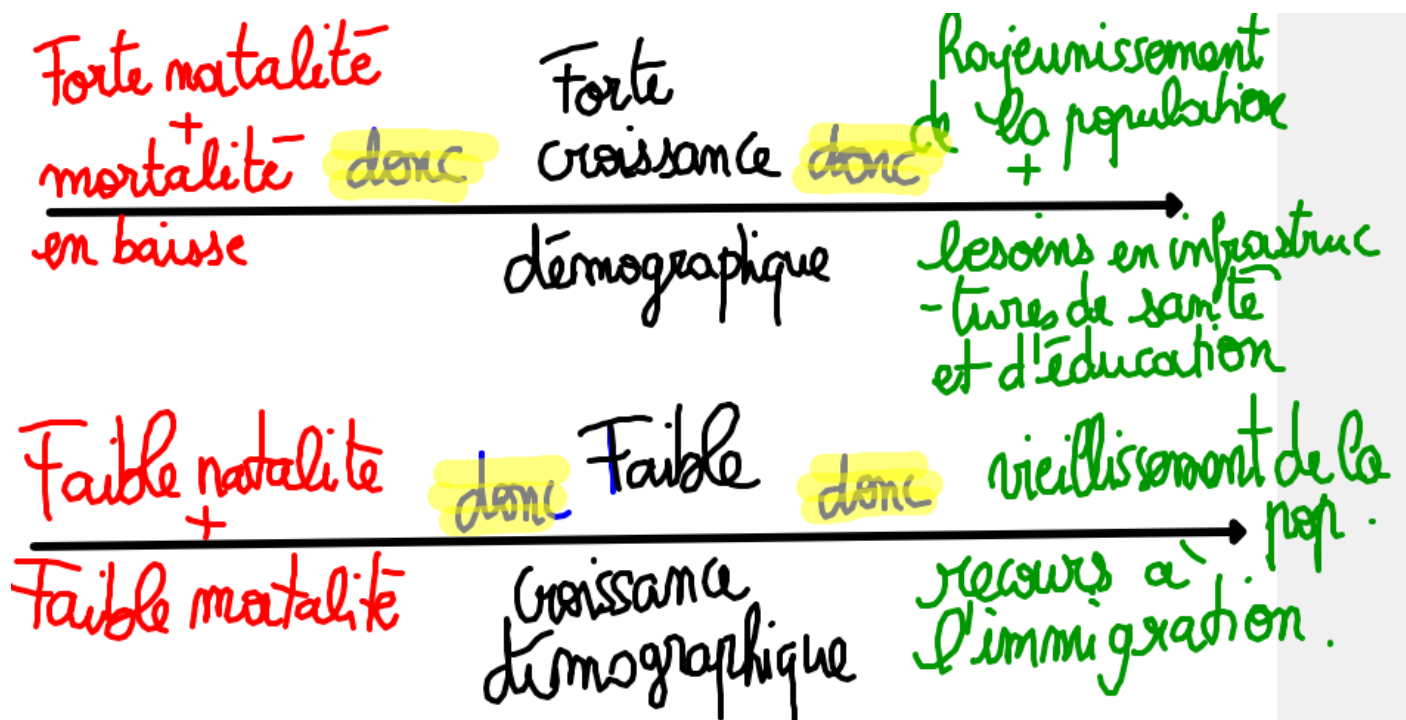 Forte natalité
+
mortalité
en baisse
donc
Forte
croissance
démographique
donc
Rajeunissement
de la population
+
besoins en infrastruc
-tures de santé
et d'éducation
Faible natalité
+
Faible mortalité
donc
Faible
croissance
démographique
donc
vieillissement de la
pop.
recours à
l'immigration.